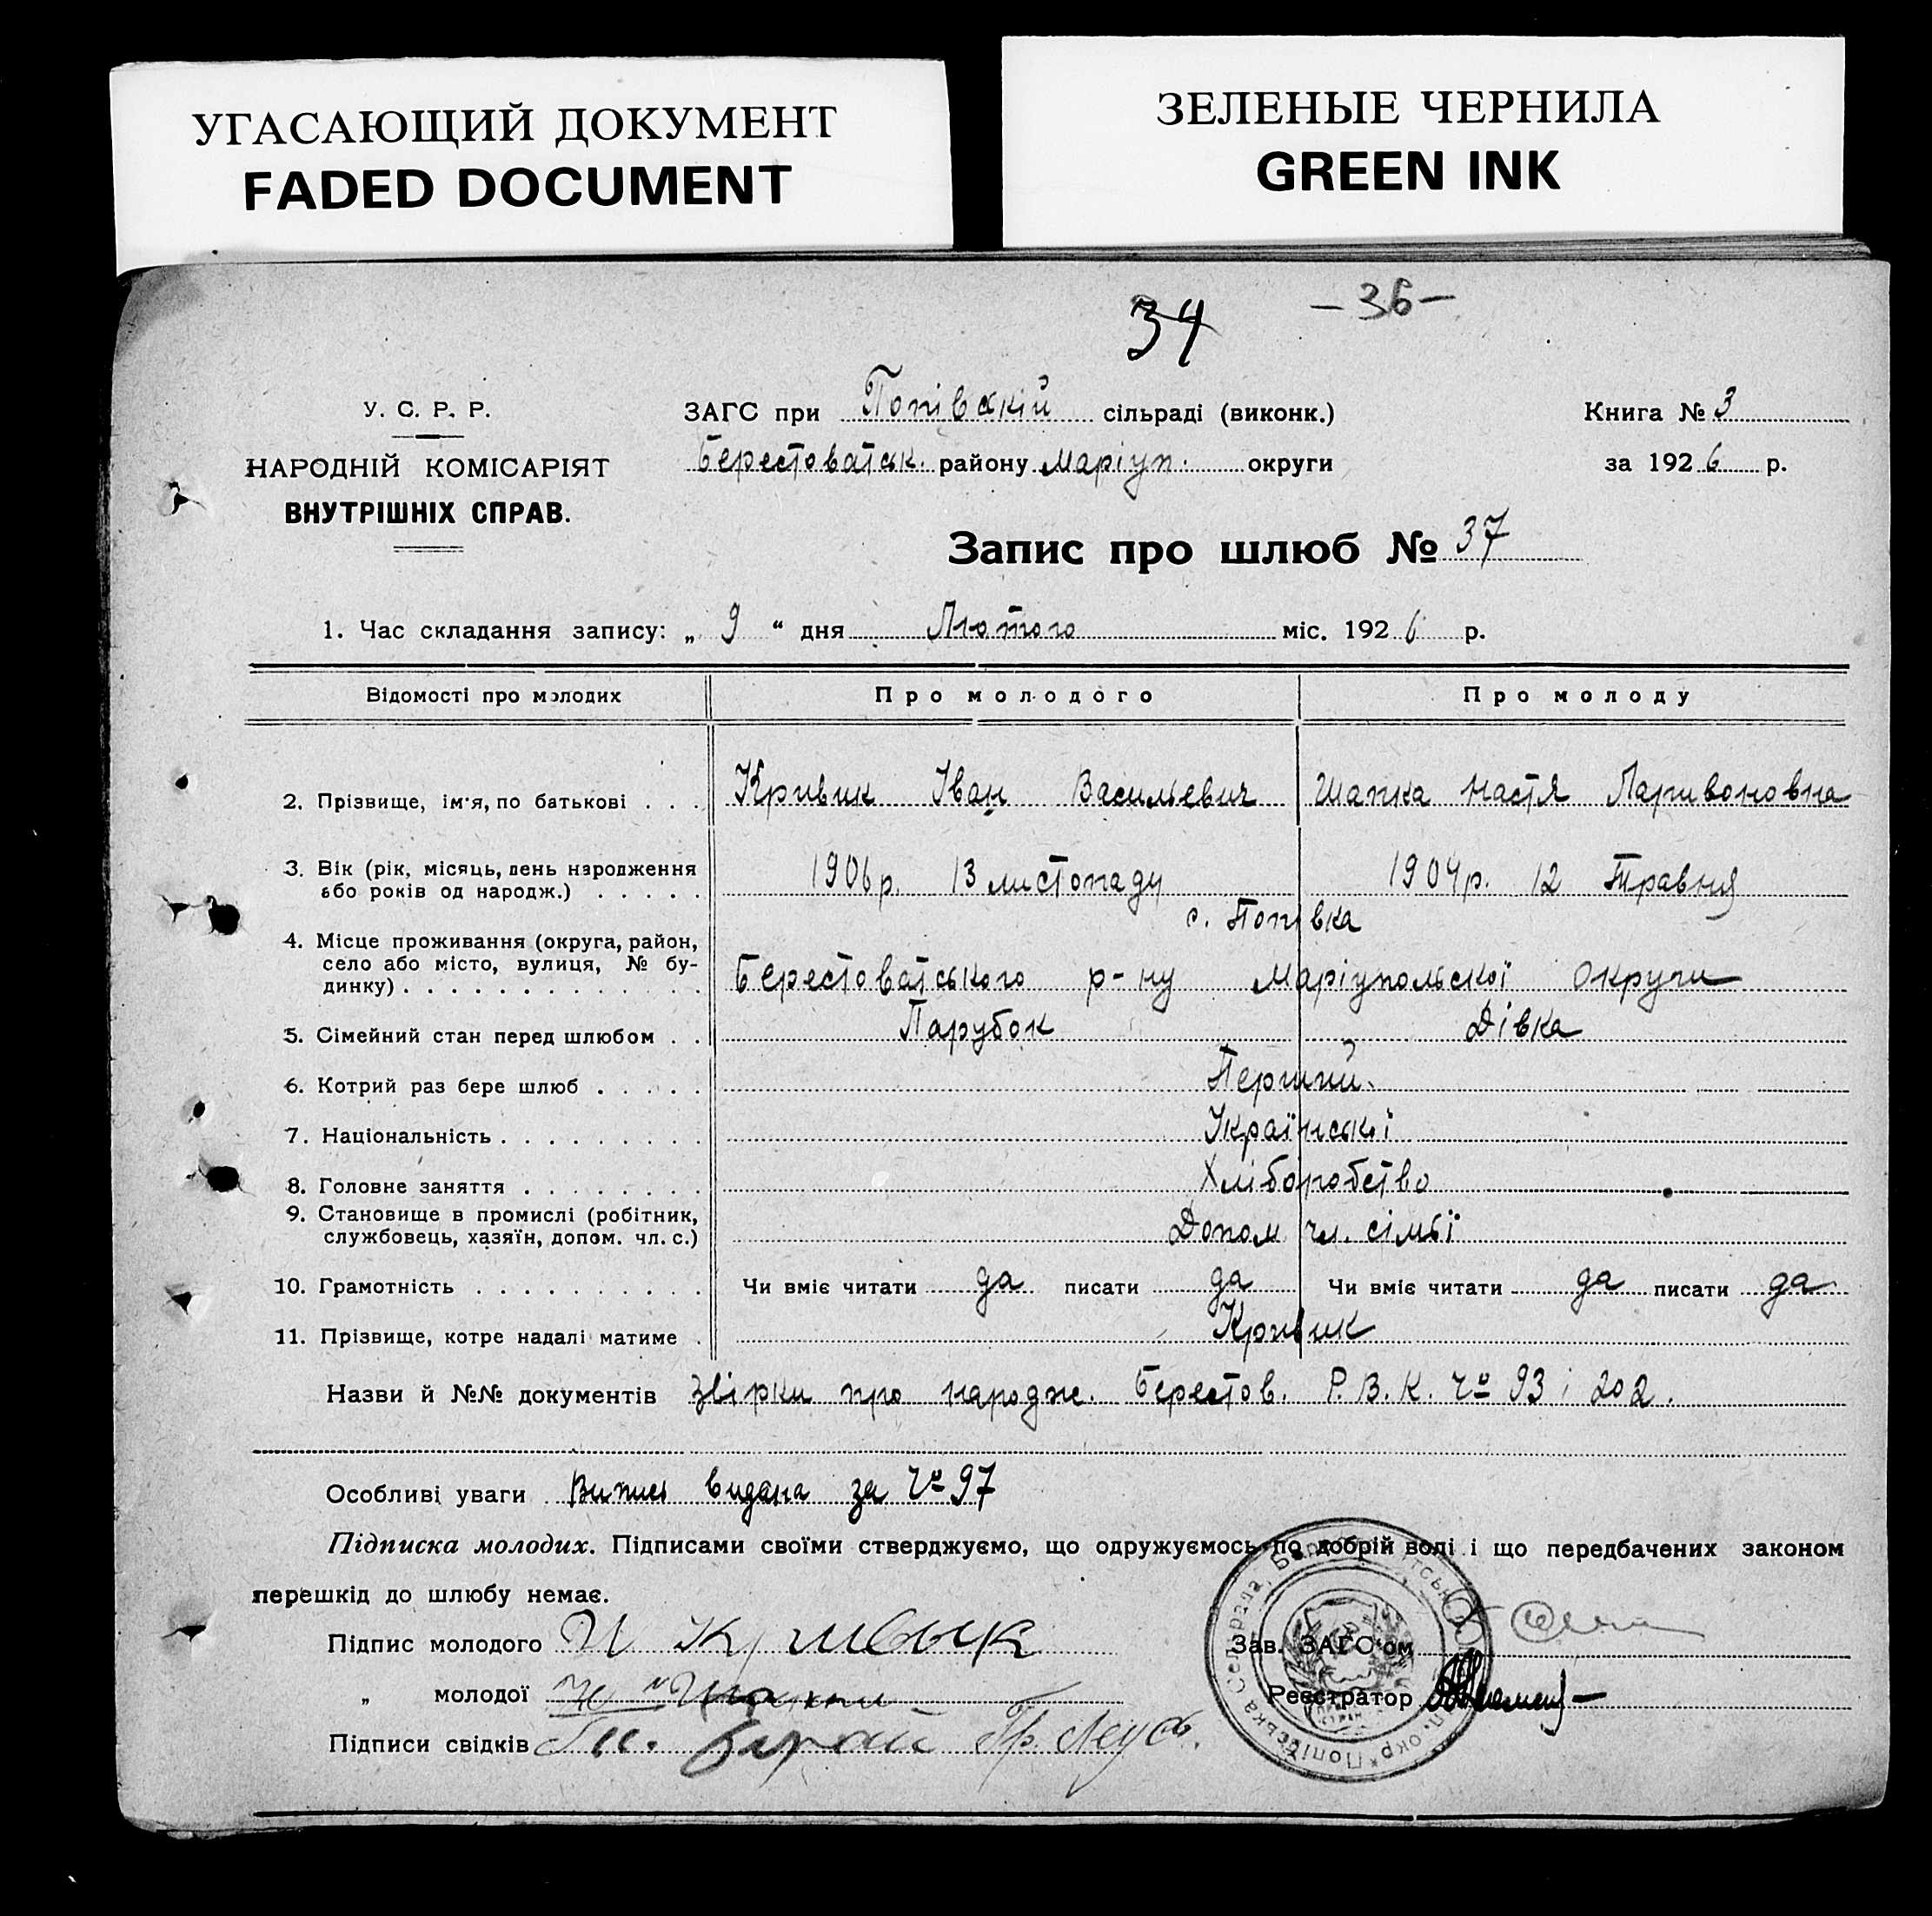 УГАСАЮЩИЙ ДОКУМЕНТ
FADED DOCUMENT
ЗЕЛЕНЫЕ ЧЕРНИЛА
GREEN INK
34
– 36 –
У. С. Р. Р.
НАРОДНІЙ КОМІСАРІЯТ
ВНУТРІШНІХ СПРАВ.
ЗАГС при Попівскій сільраді (виконк.)
Берестоватськ. району Маріуп. округи
Книга № 3
за 1926 р.
Запис про шлюб № 37
1. Час складання запису: „ 9 “ дня Лютого міс. 1926 р.
Відомості про молодих
Про молодого
Про молоду
2. Прізвище, ім'я, по батькові . . . Кривик Іван Васильевич Шапка Настя Ларивоновна
3. Вік (рік, місяць, день народження
або років од народж.) . . . . . 1906 р. 13 листопаду 1904 р. 12 Травня
с. Попівка
4. Місце проживання (округа, район,
село або місто, вулиця, № бу-
динку) . . . . . . . . . . . . . Берестоватського р-ну Маріупольскої округи
5. Сімейний стан перед шлюбом . . Парубок Дівка
6. Котрий раз бере шлюб . . . . . Перший.
7. Національність . . . . . . . . . Українські
8. Головне заняття . . . . . . . . Хліборобство
9. Становище в промислі (робітник,
службовець, хазяїн, допом. чл. с.) Допом чл. сімьї
10. Грамотність . . . . . . . . . . Чи вміє читати да писати да Чи вміє читати да писати да
11. Прізвище, котре надалі матиме . Кривик
Назви й №№ документів Звірки про народже. Берестов. Р.В.К. Чо 93 і 202.
Особливі уваги Випись видана за Чо 97
Підписка молодих. Підписами своїми стверджуємо, що одружуємось по добрій волі і що передбачених законом
перешкід до шлюбу немає.
Підпис молодого И Кривык
„ молодої
Підписи свідків
Зав. ЗАГС'ом
Реєстратор